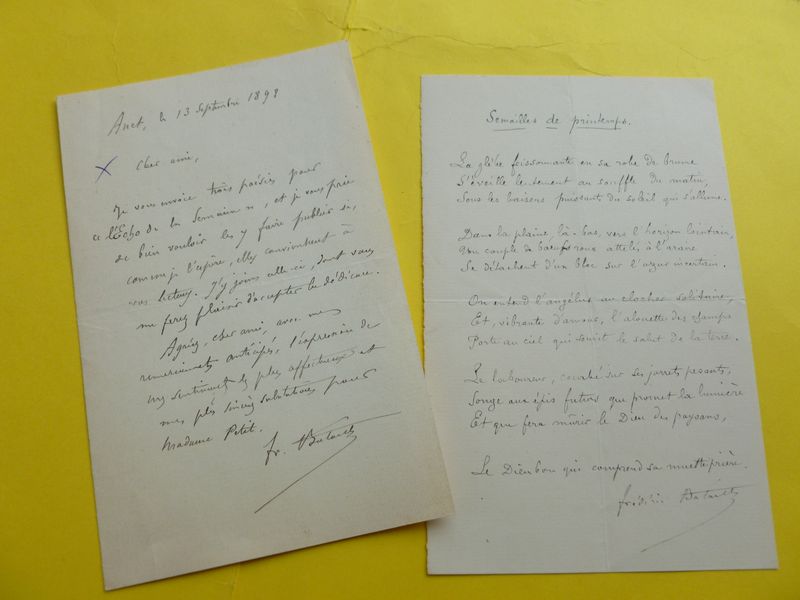 Anet, le 13 Septembre 1898
Cher ami,
Je vous envoie trois poésies pour
« l'Echo de la Semaine », et je vous prie
de bien vouloir les y faire publier si,
comme je l'espère, elles conviennent à
vos lecteurs. J'y joins celle-ci, dont vous
me ferez plaisir d'accepter la dédicace.
Agréez, cher ami, avec mes
remerciements anticipés, l'expression de
mes sentiments les plus affectueux et
mes plus sincères salutations pour
Madame Petit.
fr. Bataille
Semailles de printemps.
La glèbe foissonnante en sa robe de brume
S'éveille lentement au souffle du matin,
Sous les baisers puissant du soleil qui s'allume.
Dans la plaine, là-bas, vers l'horizon lointain,
Un couple de bœufs roux attelés à l'araire
Se détachent d'un bloc sur l'azur incertain.
On entend l'angélus au clocher solitaire,
Et, vibrante d'amour, l'alouette des champs
Porte au ciel qui sourit le salut de la terre.
Le laboureur, courbé sur ses jarrets pesants,
Songe aux épis futurs que promet la lumière
Et que fera mûrir le Dieu des paysans,
Le Dieu bon qui comprend sa muette prière.
frédéric Bataille